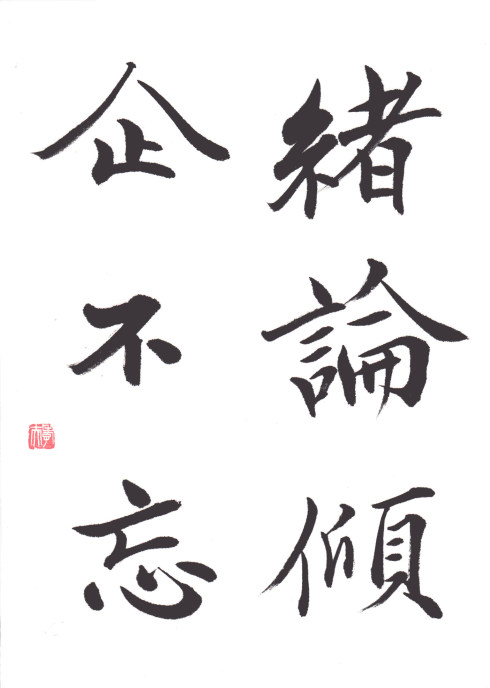 緒論傾
企不忘